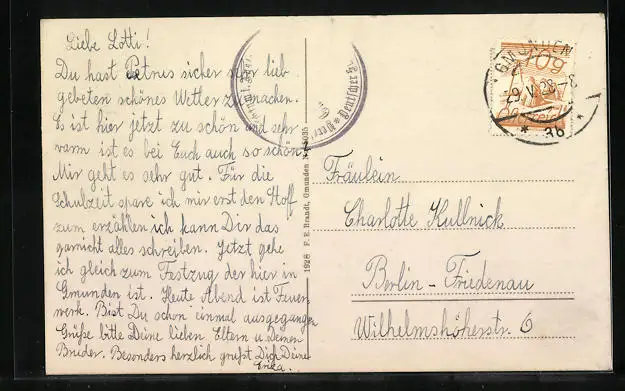 Liebe Lotti!
Du hast Petrus sicher sehr lieb
gebeten schönes Wetter zu machen.
Es ist hier jetzt zu schön und sehr
warm ist es bei Euch auch so schön?
Mir geht es sehr gut. Für die
Schulzeit spare ich mir erst den Stoff
zum erzählen ich kann Dir das
garnicht alles schreiben. Jetzt gehe
ich gleich zum Festzug der hier in
Gmunden ist. Heute Abend ist Feuer
werk. Bist Du schon einmal ausgegangen
Grüße bitte Deine lieben Eltern u. Deinen
Bruder. Besonders herzlich grüßt Dich Deine
Erika.
1928 F. E. Brandt, Gmunden
Deutscher
GMUNDEN
29. V. 28
* 3b *
Fräulein
Charlotte Kullnick
Berlin-Friedenau
Wilhelmshöherstr. 6